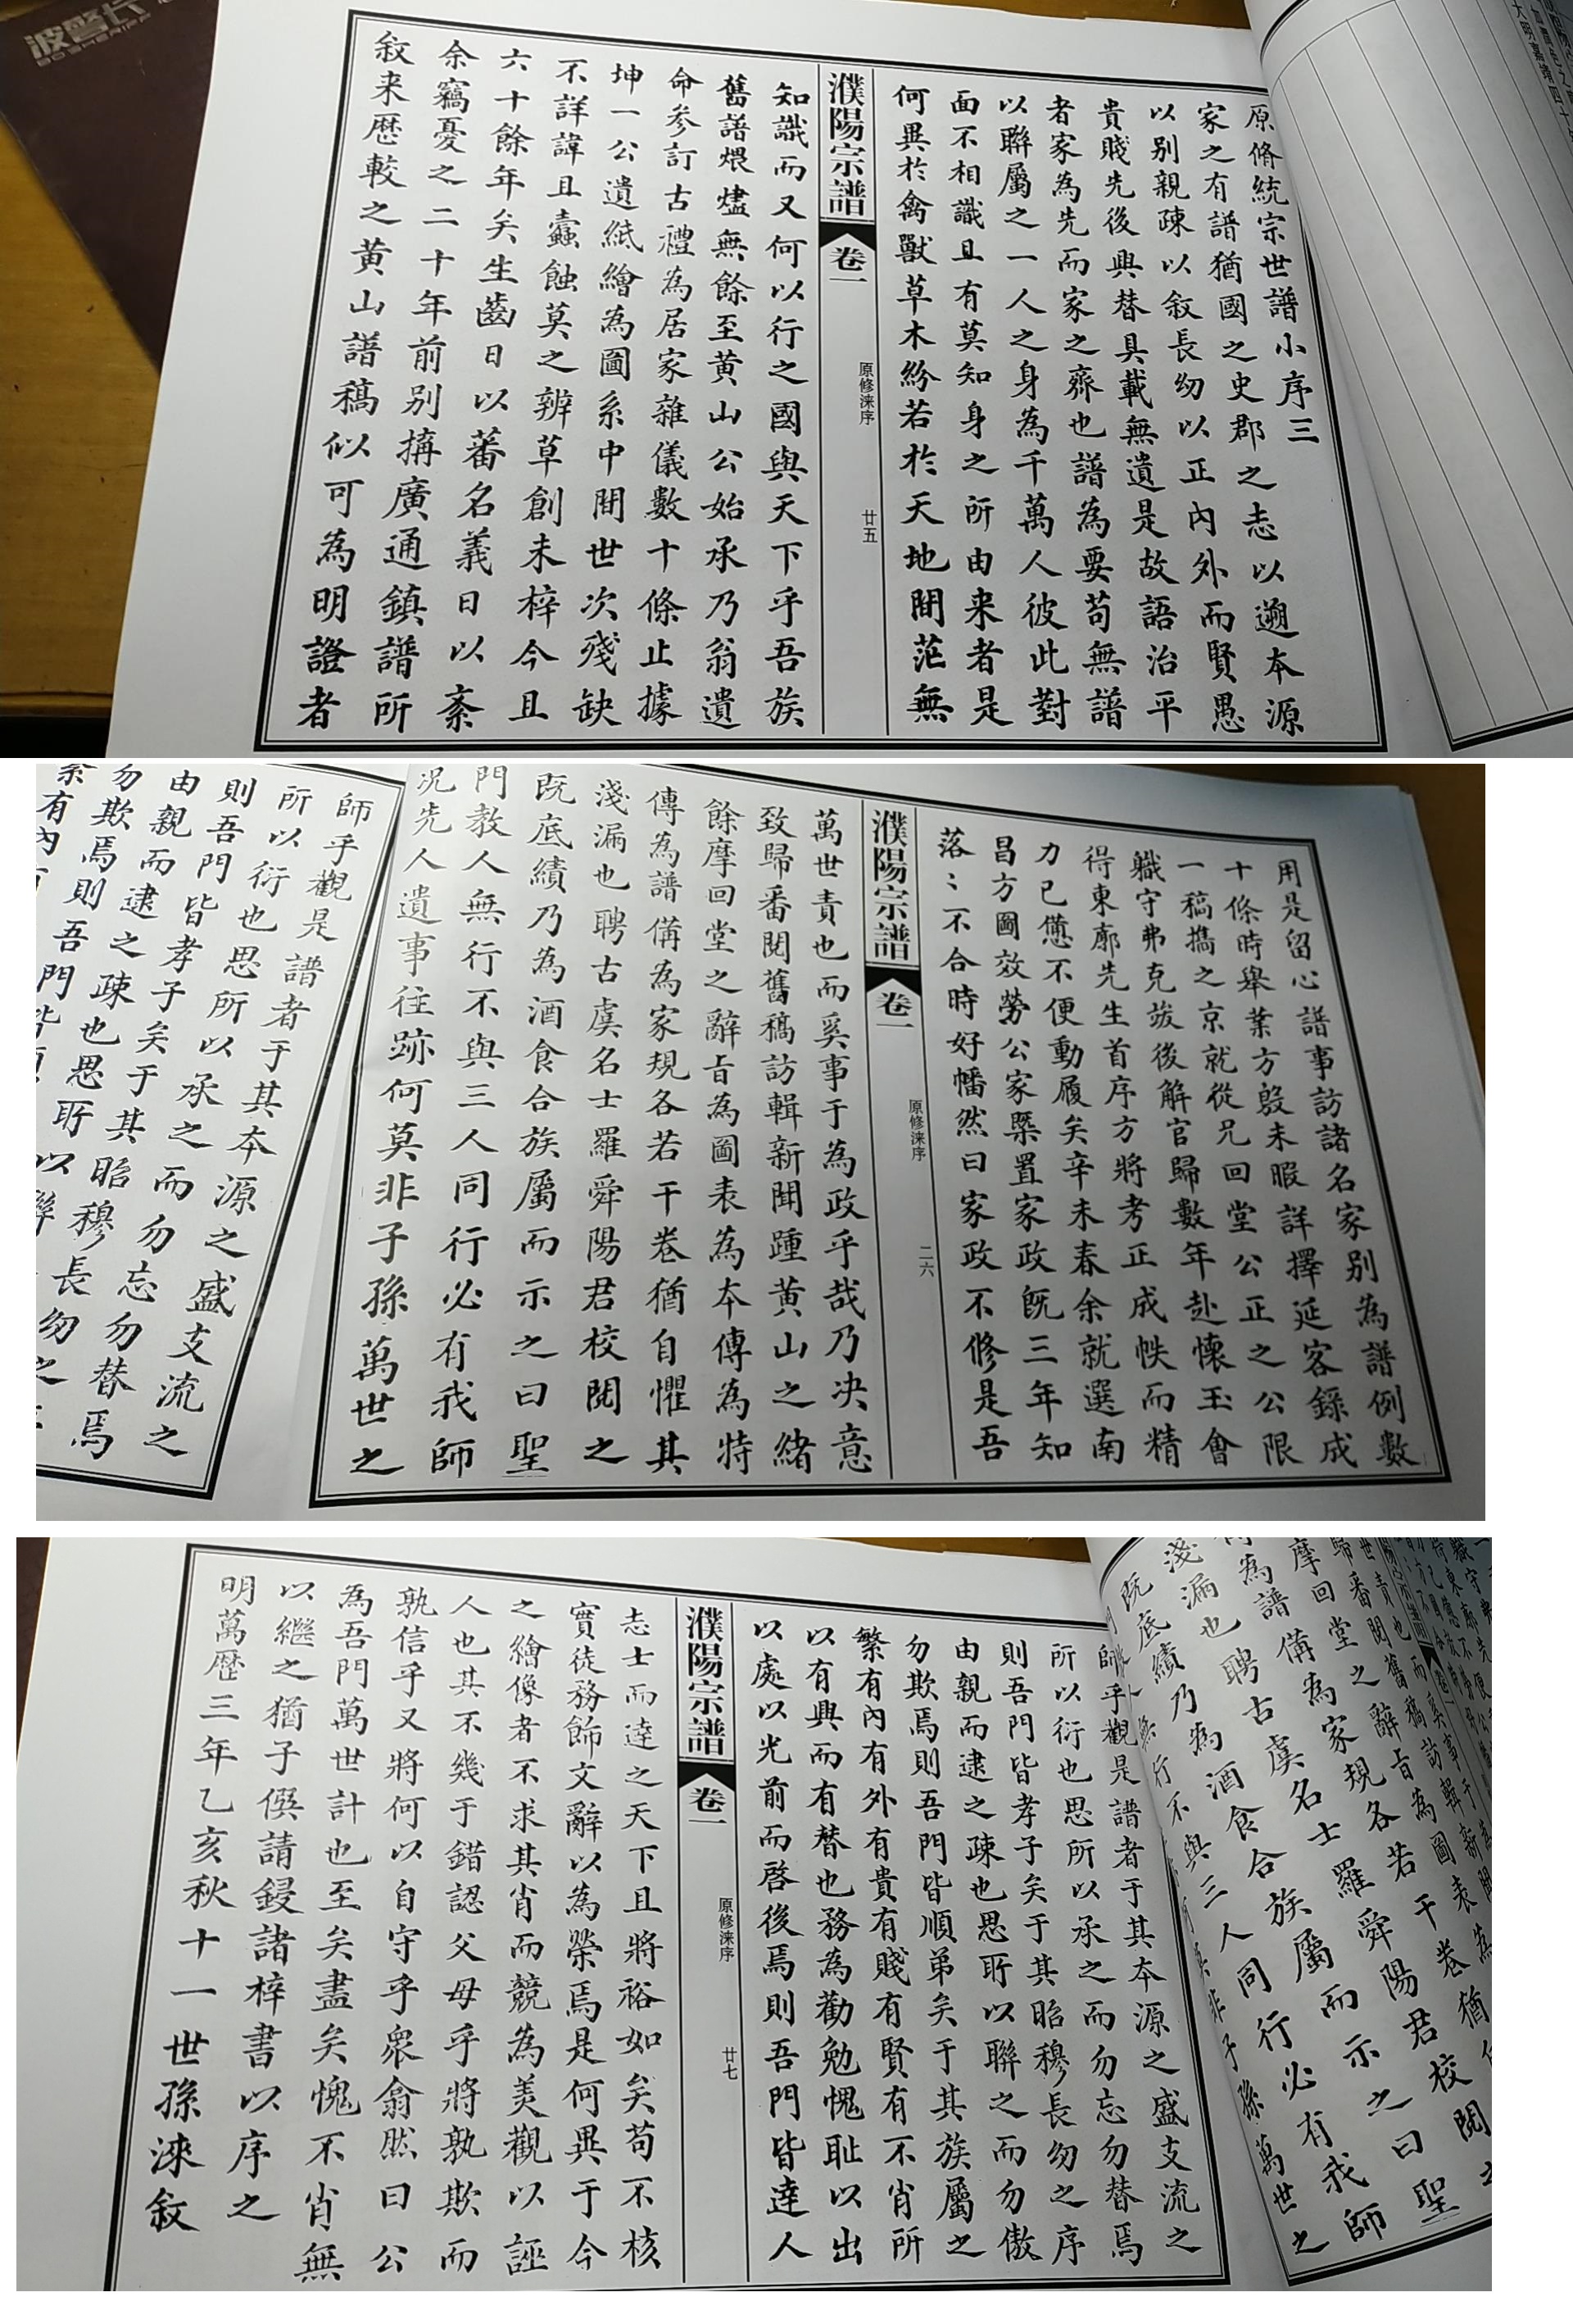 波警长
BOSHERIFF
原脩統宗世譜小序三
家之有譜猶國之史郡之志以遡本源
以别親疎以叙長幼以正内外而賢愚
貴賤先後興替具載無遺是故語治平
者家為先而家之齊也譜為要苟無譜
以聯屬之一人之身為千萬人彼此對
面不相識且有莫知身之所由来者是
何異於禽獸草木紛若於天地間茫無
濮陽宗譜
卷一
原修淶序
廿五
知識而又何以行之國與天下乎吾族
舊譜煨燼無餘至黄山公始承乃翁遺
命參訂古禮為居家雜儀數十條止據
坤一公遺紙繪為圖系中間世次殘缺
不詳諱且蠹蝕莫之辨草創未梓今且
六十餘年矣生齒日以蕃名義日以紊
余竊憂之二十年前别搆廣通鎮譜所
叙来歴較之黄山譜稿似可為明證者
用是留心譜事訪諸名家别為譜例數
十條時舉業方殷未暇詳擇延客録成
一稿擕之京就從兄回堂公正之公限
職守弗克竣後解官歸數年赴懷玉會
得東廓先生首序方將考正成帙而精
力已憊不便動履矣辛未春余就選南
昌方圖效勞公家槩置家政既三年知
落〻不合時好幡然曰家政不修是吾
濮陽宗譜
卷一
原修淶序
二六
萬世責也而奚事于為政乎哉乃决意
致歸番閱舊稿訪輯新聞踵黄山之緒
餘摩回堂之辭旨為圖表為本傳為特
傳為譜備為家規各若干卷猶自懼其
淺漏也聘古虞名士羅舜陽君校閱之
既底績乃為酒食合族屬而示之曰聖
門教人無行不與三人同行必有我師
况先人遺事往跡何莫非子孫萬世之
師乎觀是譜者于其本源之盛支流之
所以衍也思所以承之而勿忘勿替焉
則吾門皆孝子矣于其昭穆長幼之序
由親而逮之疎也思所以聯之而勿傲
勿欺焉則吾門皆順弟矣于其族屬之
繁有内有外有貴有賤有賢有不肖所
以有興而有替也務為勸勉愧耻以出
以處以光前而啓後焉則吾門皆達人
濮陽宗譜
卷一
原修淶序
廿七
志士而達之天下且將裕如矣苟不核
實徒務飾文辭以為榮焉是何異于今
之繪像者不求其肖而競為美觀以誣
人也其不幾于錯認父母乎將孰欺而
孰信乎又將何以自守乎衆翕然曰公
為吾門萬世計也至矣盡矣愧不肖無
以繼之猶子僎請鋟諸梓書以序之
明萬歴三年乙亥秋十一世孫淶叙